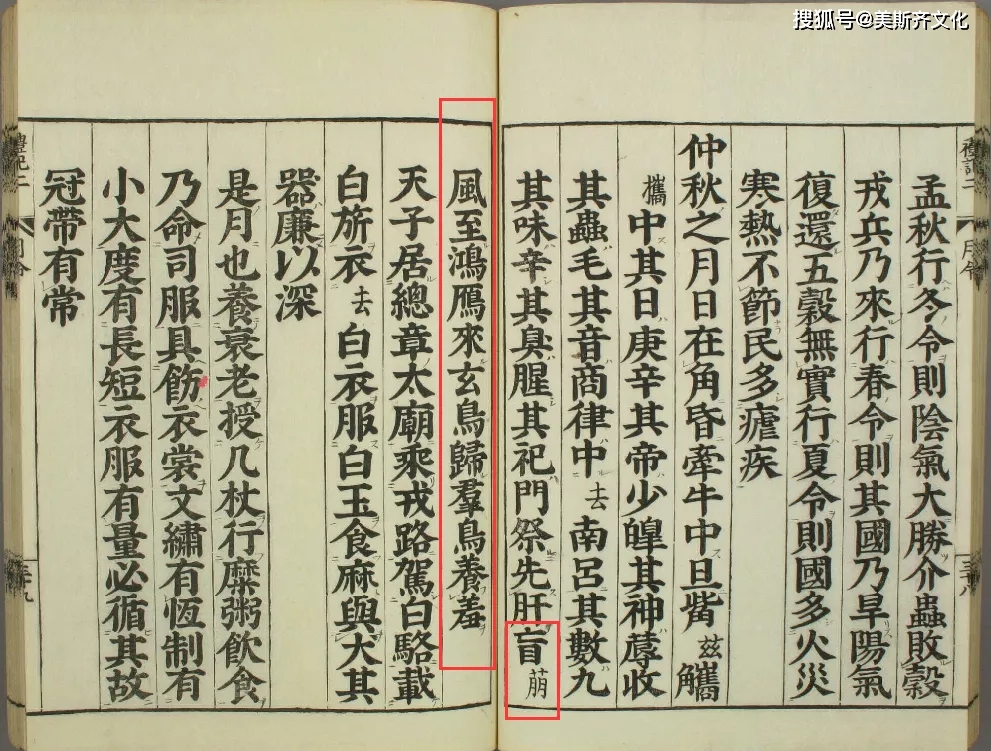 搜狐号@美斯齐文化
孟秋行冬令則陰氣大勝介蟲敗穀
戎兵乃來行春令則其國乃旱陽氣
復還五穀無實行夏令則國多火災
寒熱不節民多瘧疾
仲秋之月日在角昏牽牛中旦觜茲觿
攜中其日庚辛其帝少皡其神蓐收
其蟲毛其音商律中去南呂其數九
其味辛其臭腥其祀門祭先肝盲萠
風至鴻鴈來玄鳥歸羣鳥養羞
天子居總章太廟乘戎路駕白駱載
白旂衣去白衣服白玉食麻與犬其
器廉以深
是月也養衰老授几杖行糜粥飲食
乃命司服具飭衣裳文繡有恆制有
小大度有長短衣服有量必循其故
冠帶有常
禮記二